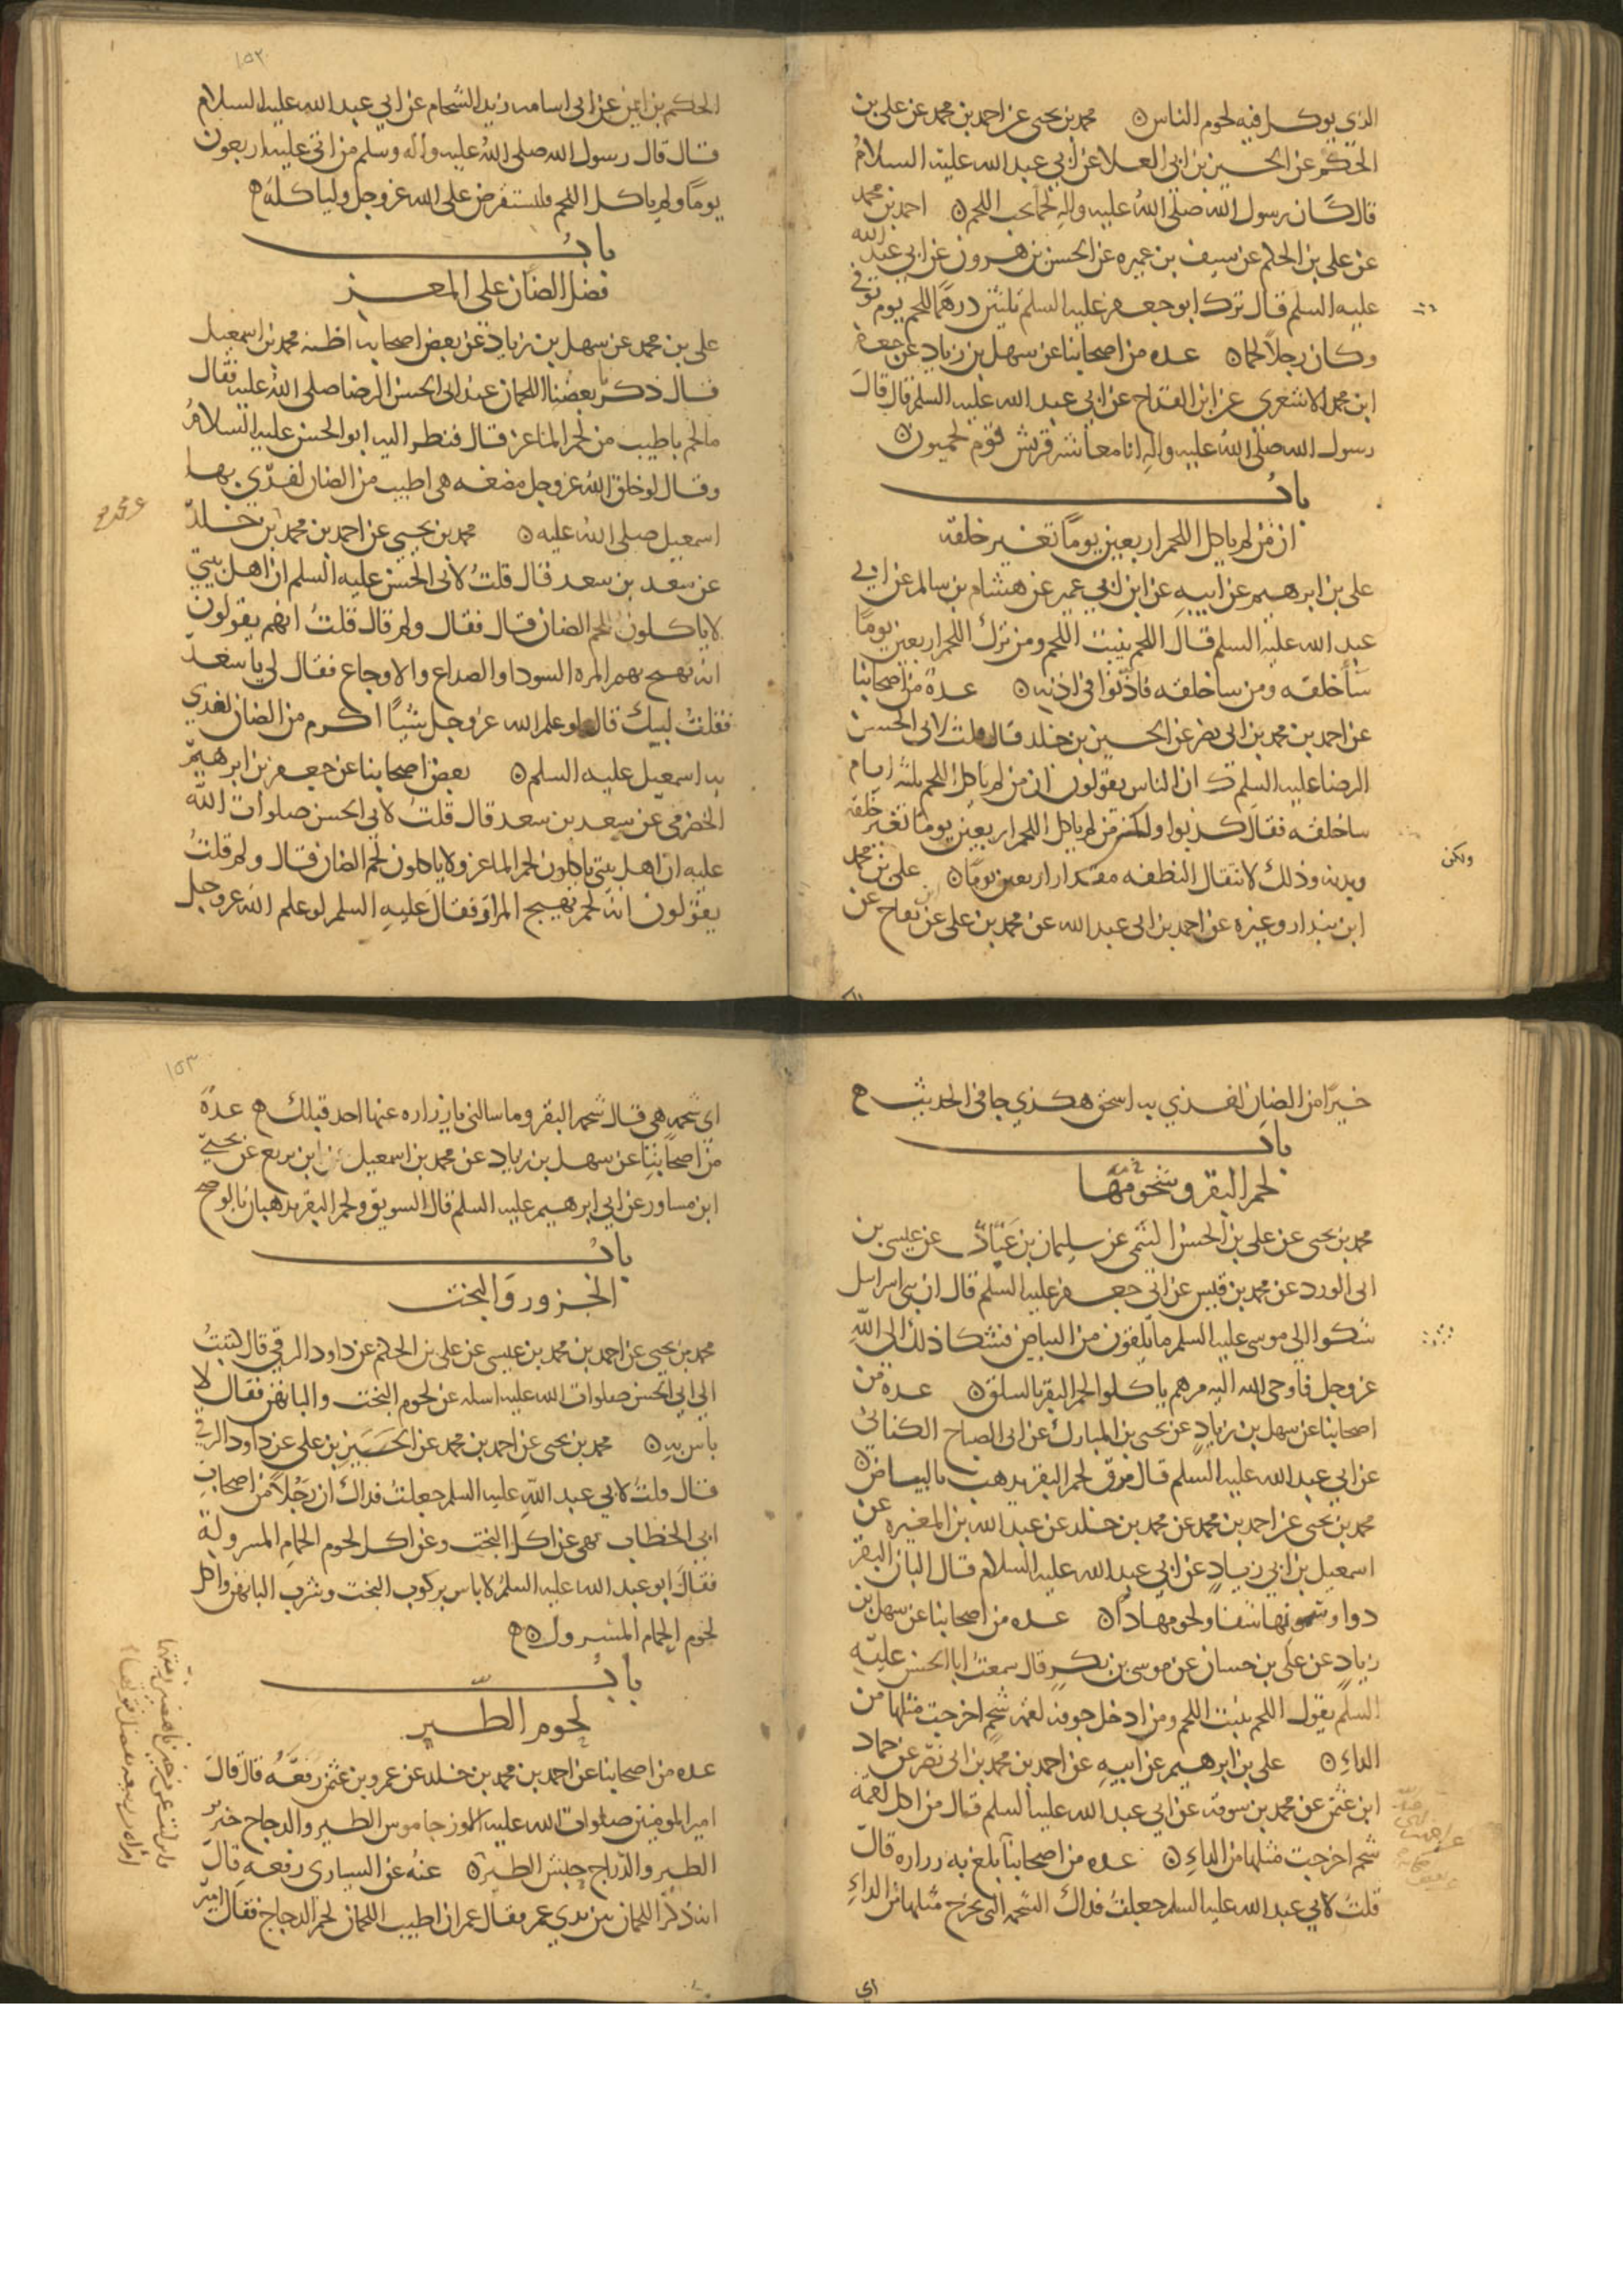 الذي يوكل فيه لحوم الناس ٥ محمد بن يحيى عن احمد بن محمد عن علي بن
الحكم عن الحسين بن ابي العلا عن ابي عبد الله عليه السلام
قال كان رسول الله صلى الله عليه واله لحما يحب اللحم ٥ احمد بن محمد
عن علي بن الحكم عن سيف بن عميره عن الحسن بن هرون عن ابي عبد الله
عليه السلم قال ترك ابو جعفر عليه السلم ثلثين درهما للحم يوم توفي
وكان رجلا لحما ٥ عده من اصحابنا عن سهل بن زياد عن جعفر
ابن محمد الاشعري عن ابن القداح عن ابي عبد الله عليه السلم قال قال
رسول الله صلى الله عليه واله انا معاشر قريش قوم لحميون ٥
باب
ان من لم ياكل اللحم اربعين يوما تغير خلقه
علي بن ابرهيم عن ابيه عن ابن ابي عمير عن هشام بن سالم عن ابي
عبد الله عليه السلم قال اللحم ينبت اللحم ومن ترك اللحم اربعين يوما
سآ خلقه ومن سا خلقه فاذنوا في اذنه ٥ عدة من اصحابنا
عن احمد بن محمد بن ابي نصر عن الحسين بن خلد قال قلت لابي الحسن
الرضا عليه السلم ان الناس يقولون ان من لم ياكل اللحم ثلثه ايام
سا خلقه فقال كذبوا ولكن من لم ياكل اللحم اربعين يوما تغير خلقه
وبدنه وذلك لانتقال النطفه مقدار اربعين يوما ٥ علي بن محمد
ولكن
ابن بندار وغيره عن احمد بن ابي عبد الله عن محمد بن علي عن ابن بقاح عن
١٥٢
الحكم بن ايمن عن ابي اسامه زيد الشحام عن ابي عبد الله عليه السلام
قال قال رسول الله صلى الله عليه واله وسلم من اتى عليه اربعون
يوما ولم ياكل اللحم فليستقرض على الله عز وجل ولياكله ه
باب
فضل الضان على المعز
علي بن محمد عن سهل بن زياد عن بعض اصحابه اظنه محمد بن اسمعيل
قال ذكر بعضنا اللحمان عند ابي الحسن الرضا صلى الله عليه فقال
ما لحم باطيب من لحم الماعز قال فنظر اليه ابو الحسن عليه السلام
وقال لو خلق الله عز وجل مضغه هي اطيب من الضان لفدى بها
اسمعيل صلى الله عليه ٥ محمد بن يحيى عن احمد بن محمد بن خلد
عن سعد بن سعد قال قلت لابي الحسن عليه السلم ان اهل بيتي
لا ياكلون لحم الضان قال فقال ولم قال قلت انهم يقولون
انه يهيج بهم المره السودا والصداع والاوجاع فقال لي يا سعد
فقلت لبيك قال لو علم الله عز وجل شيئا اكرم من الضان لفدي
به اسمعيل عليه السلم ٥ بعض اصحابنا عن جعفر بن ابرهيم
الحضرمي عن سعد بن سعد قال قلت لابي الحسن صلوات الله
عليه ان اهل بيتي ياكلون لحم الماعز ولا ياكلون لحم الضان قال ولم قلت
يقولون انه لحم يهيج المرار فقال عليه السلم لو علم الله عز وجل
خيرا من الضان لفدي به اسحق هكذي جا في الحديث ه
باب
لحم البقر وشحومها
محمد بن يحيى عن علي بن الحسن التيمي عن سليمان بن عباد عن عيسى بن
ابي الورد عن محمد بن قيس عن ابي جعفر عليه السلم قال ان بني اسرايل
شكوا الى موسى عليه السلم ما يلقون من البياض فشكا ذلك الى الله
عز وجل فاوحى الله اليه مرهم ياكلوا لحم البقر بالسلق ٥ عده من
اصحابنا عن سهل بن زياد عن يحيى بن المبارك عن ابي الصباح الكناني
عن ابي عبد الله عليه السلم قال مرق لحم البقر يذهب بالبياض ٥
محمد بن يحيى عن احمد بن محمد عن محمد بن خلد عن عبد الله بن المغيره عن
اسمعيل بن ابي زياد عن ابي عبد الله عليه السلام قال البان البقر
دوا وسمونها شفا ولحومها دا ٥ عده من اصحابنا عن سهل بن
زياد عن علي بن حسان عن موسى بن بكر قال سمعت ابا الحسن عليه
السلم يقول اللحم ينبت اللحم ومن ادخل جوفه لقمه شحم اخرجت مثلها من
الداء ٥ علي بن ابرهيم عن ابيه عن احمد بن محمد بن ابي نصر عن حماد
ابن عثمن عن محمد بن سوقه عن ابي عبد الله عليه السلم قال من اكل لقمه
شحم اخرجت مثلها من الداء ٥ عده من اصحابنا بلغ به زراره قال
قلت لابي عبد الله عليه السلم جعلت فداك الشحمه التي تخرج مثلها من الداء
اي
١٥٣
اي شحمه هي قال شحم البقر وما سالني يا زراره عنها احد قبلك ه عدة
من اصحابنا عن سهل بن زياد عن محمد بن اسمعيل بن بزيع عن يحيى
ابن مساور عن ابي ابرهيم عليه السلم قال السويق ولحم البقر يذهبان بالوضح
باب
الجزور والبخت
محمد بن يحيى عن احمد بن محمد بن عيسى عن علي بن الحكم عن داود الرقي قال كتبت
الى ابي الحسن صلوات الله عليه اساله عن لحوم البخت والبانهن فقال لا
باس به ٥ محمد بن يحيى عن احمد بن محمد عن الحسين بن علي عن داود الرقي
قال قلت لابي عبد الله عليه السلم جعلت فداك ان رجلا من اصحاب
ابي الخطاب نهى عن اكل البخت وعن اكل لحوم الحمام المسرولة
فقال ابو عبد الله عليه السلم لا باس بركوب البخت وشرب البانهن واكل
لحوم الحمام المسرول ٥ ه
باب
لحوم الطير
عده من اصحابنا عن احمد بن محمد بن خلد عن عمرو بن عثمن رفعه قال قال
امير المومنين صلوات الله عليه الاوز جاموس الطير والدجاج خنزير
الطير والدراج حبش الطير ٥ عنه عن السياري رفعه قال
انه ذكر اللحمان بين يدي عمر فقال عمر ان اطيب اللحمان لحم الدجاج فقال امير